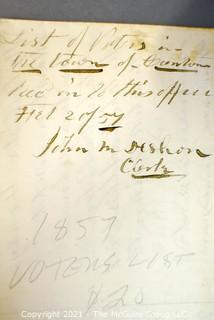 List of Voters in
the town of Trenton
Rec in to this office
Feb 2 of 57
John M
Clerk
1857
VOTERS LIST
$20
Copyright 2021 - The McGuire Group LLC